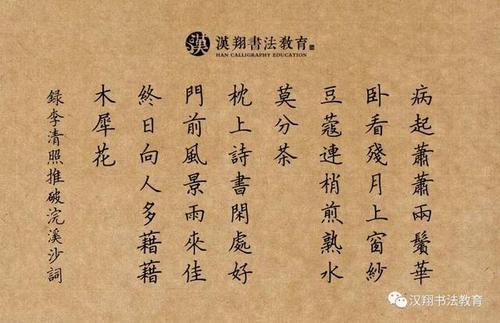 漢翔書法教育
HAN CALLIGRAPHY EDUCATION
病起蕭蕭兩鬢華
卧看殘月上窗紗
豆蔻連梢煎熟水
莫分茶
枕上詩書閑處好
門前風景雨來佳
終日向人多藉藉
木犀花
録李清照推破浣溪沙詞
汉翔书法教育